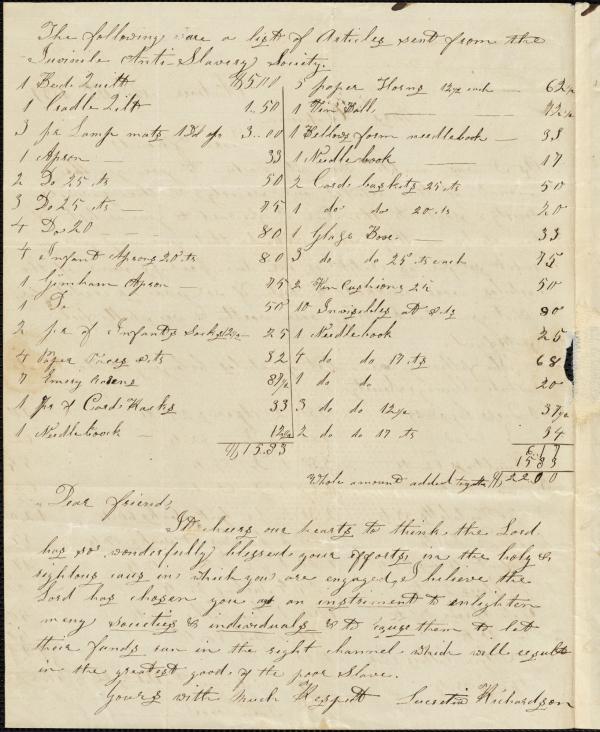 The following are a list of Articles sent from the
Juvinile Anti-Slavery Society.
1 Bed Quilt $5.00
1 Cradle Qilt 1.50
3 pr Lamp mats 1D 3..00
1 Apron — 33
2 Do 25 cts 50
3 Do 25 cts — 75
4 Do 20 — 80
4 Infant Aprons 20 cts 80
1 Gimham Apron — 75
1 Do 50
2 pr of Infants Socks 12½ 25
4 Paper 8 cts 32
7 Emery 87½
1 pr of Card Racks 33
1 Needlebook — 12½
$15.83
5 paper Horns 12½ each — 62½
1 Ball 12½
1 Bellows form needlebook — 33
1 Needlebook — 17
2 Card baskets 25 cts 50
1 do do 20 cts 20
1 Glass Box. — 33
3 do do 25 cts each 75
2 Cushions 25 50
10 Invisibles at 8 cts 80
1 Needlebook 25
4 do do 17 cts 68
1 do do 20
3 do do 12½ 37½
2 do do 17 cts 34
6.17
15 83
Whole amount added together $22.00
Dear friend,
It cheers our hearts to think the Lord
has so wonderfully blessed your efforts in the holy &
rightous caus in which you are engaged I believe the
Lord has chosen you as an instriment to enlighten
many societies & individuals & to cause them to let
their funds run in the right channel which will result
in the greatest good of the poor Slave.
Yours with much Respect Lucretia Richardson